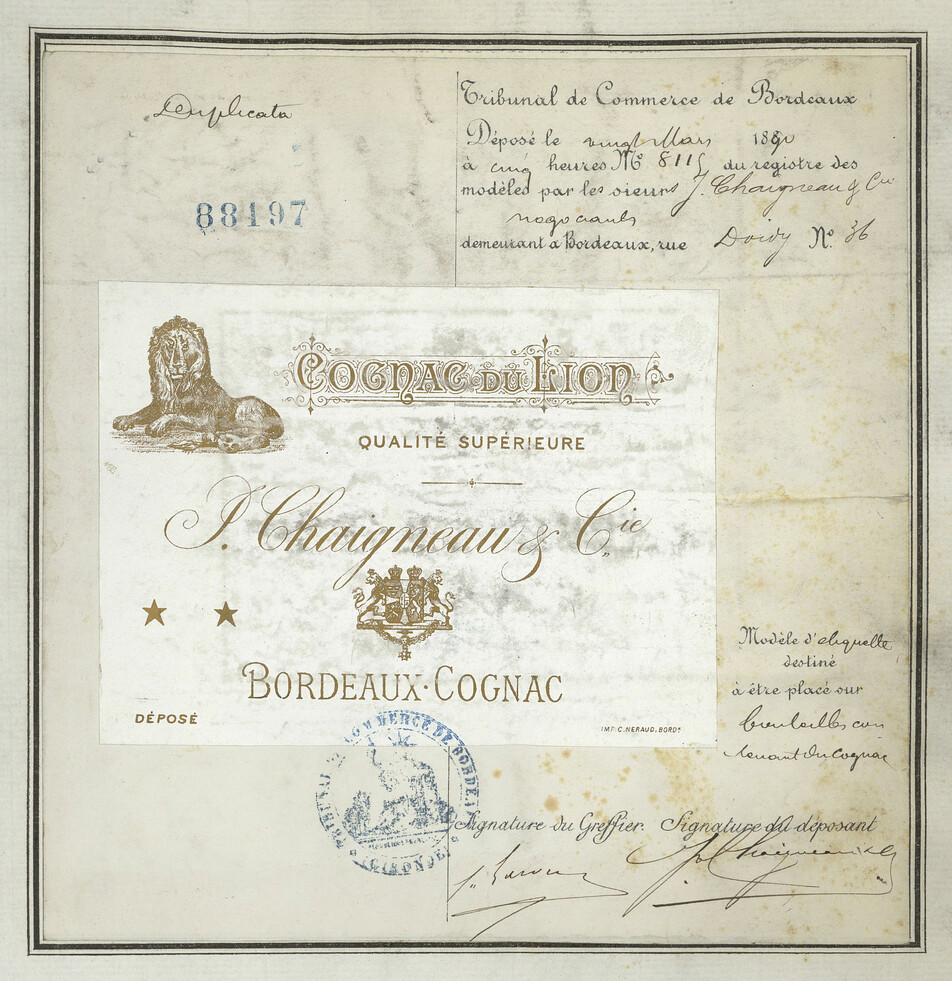 Duplicata
88197
Tribunal de Commerce de Bordeaux
Déposé le vingt Mars 1890
à cinq heures No 8115 du registre des
modèles par les sieurs J. Chaigneau & Cie
négociants
demeurant à Bordeaux, rue No. 36
COGNAC DU LION
QUALITÉ SUPÉRIEURE
J. Chaigneau & Cie
BORDEAUX·COGNAC
DÉPOSÉ
IMP. C. NERAUD, BORDx
Modèle d'étiquette
destiné
à être placé sur
bouteilles con
tenant du cognac
TRIBUNAL DE COMMERCE DE BORDEAUX
(GIRONDE)
Signature du Greffier. Signature du déposant
J. Chaigneau & Cie